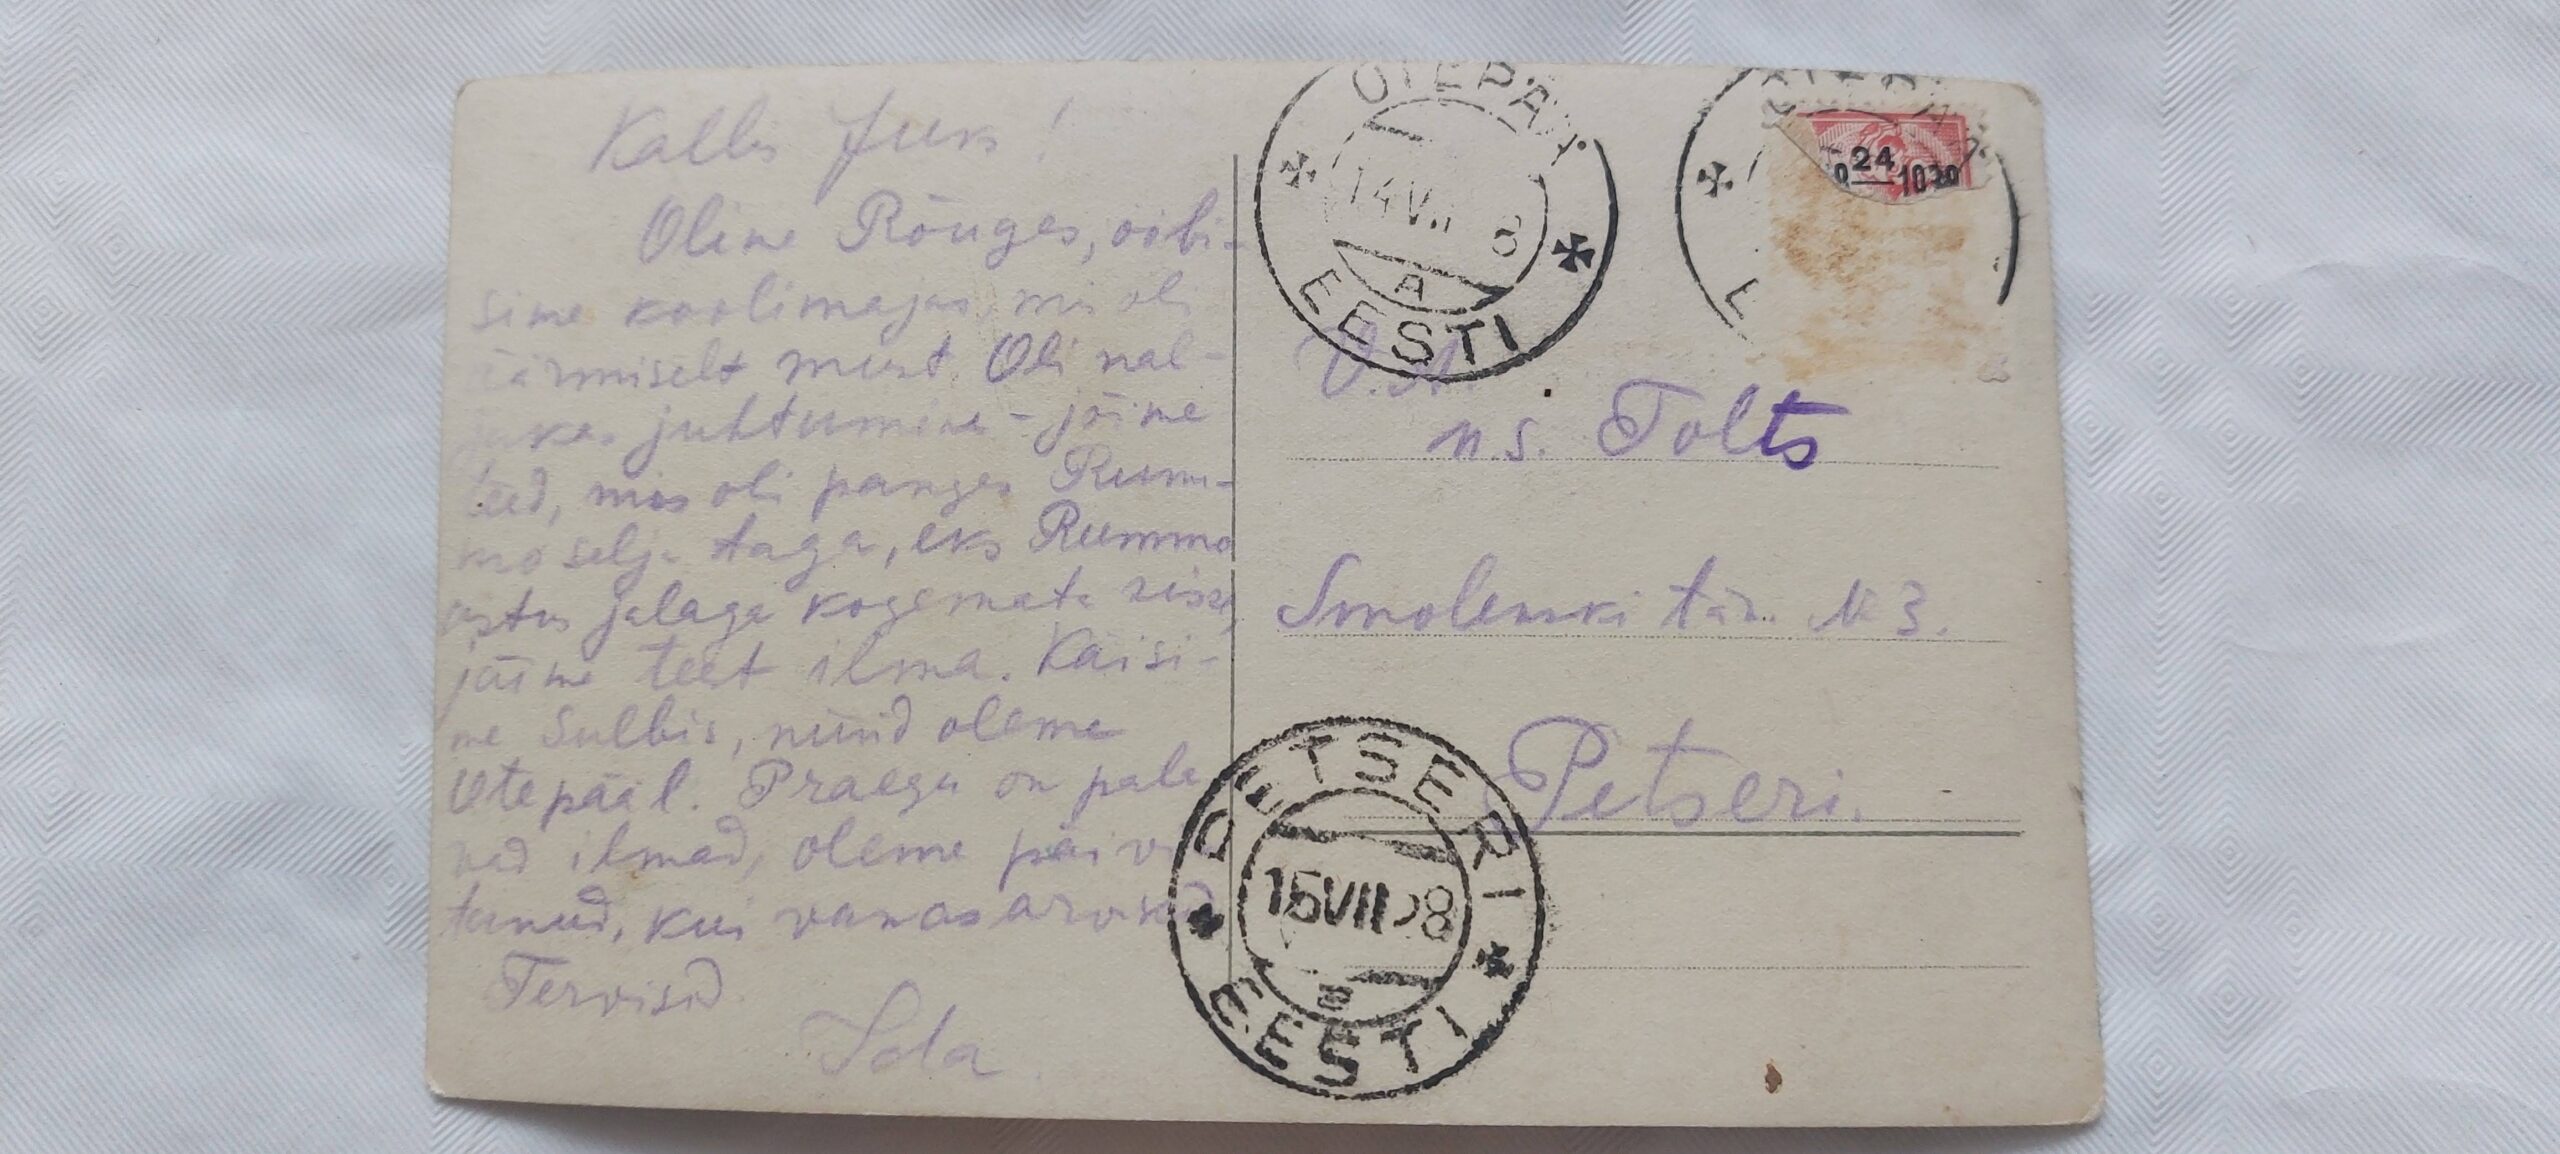 Kallis Juks!
Olime Rõuges, ööbi-
sime koolimajas, mis oli
äärmiselt must. Oli nal-
jakas juhtumine - jõime
teed, mis oli panges Rum-
mo selja taga, eks Rummo
astus jalaga kogemata sisse,
jäime teest ilma. Käisi-
me Sulbis, nüüd oleme
Otepääl. Praegu on pala
vad ilmad, oleme päevi
tunud, kui vanasarvised
Tervisid
OTEPÄÄ
14 VII 8
A
EESTI
24
1030
V.A.
n.s. Tolts
Smolenski tän. N 3.
Petseri.
PETSERI
15 VII 28
B
EESTI